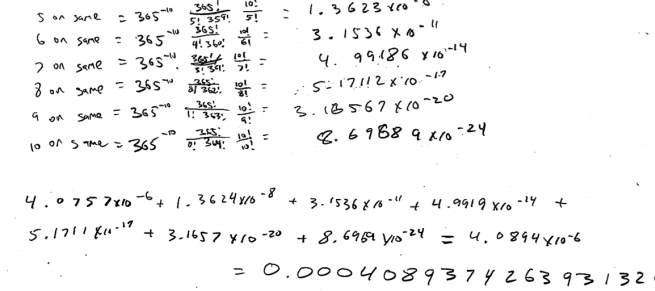 5 on same = 365^-10 365!/5! 359! 10!/5! = 1.3623 x10^-8
6 on same = 365^-10 365!/4! 360! 10!/6! = 3.1536 x 10^-11
7 on same = 365^-10 10!/7! = 4.99186 x10^-14
8 on same = 365^-10 10!/8! = 5.17112 x 10^-17
9 on same = 365^-10 365!/1! 363! 10!/9! = 3.16567 x10^-20
10 on same = 365^-10 365!/0! 364! 10!/10! = 8.69689 x10^-24
4.0757x10^-6 + 1.3624x10^-8 + 3.1536 x 10^-11 + 4.9919 x10^-14 +
5.1711 x10^-17 + 3.1657 x 10^-20 + 8.6969 x10^-24 = 4.0894 x10^-6
= 0.000408937426393132